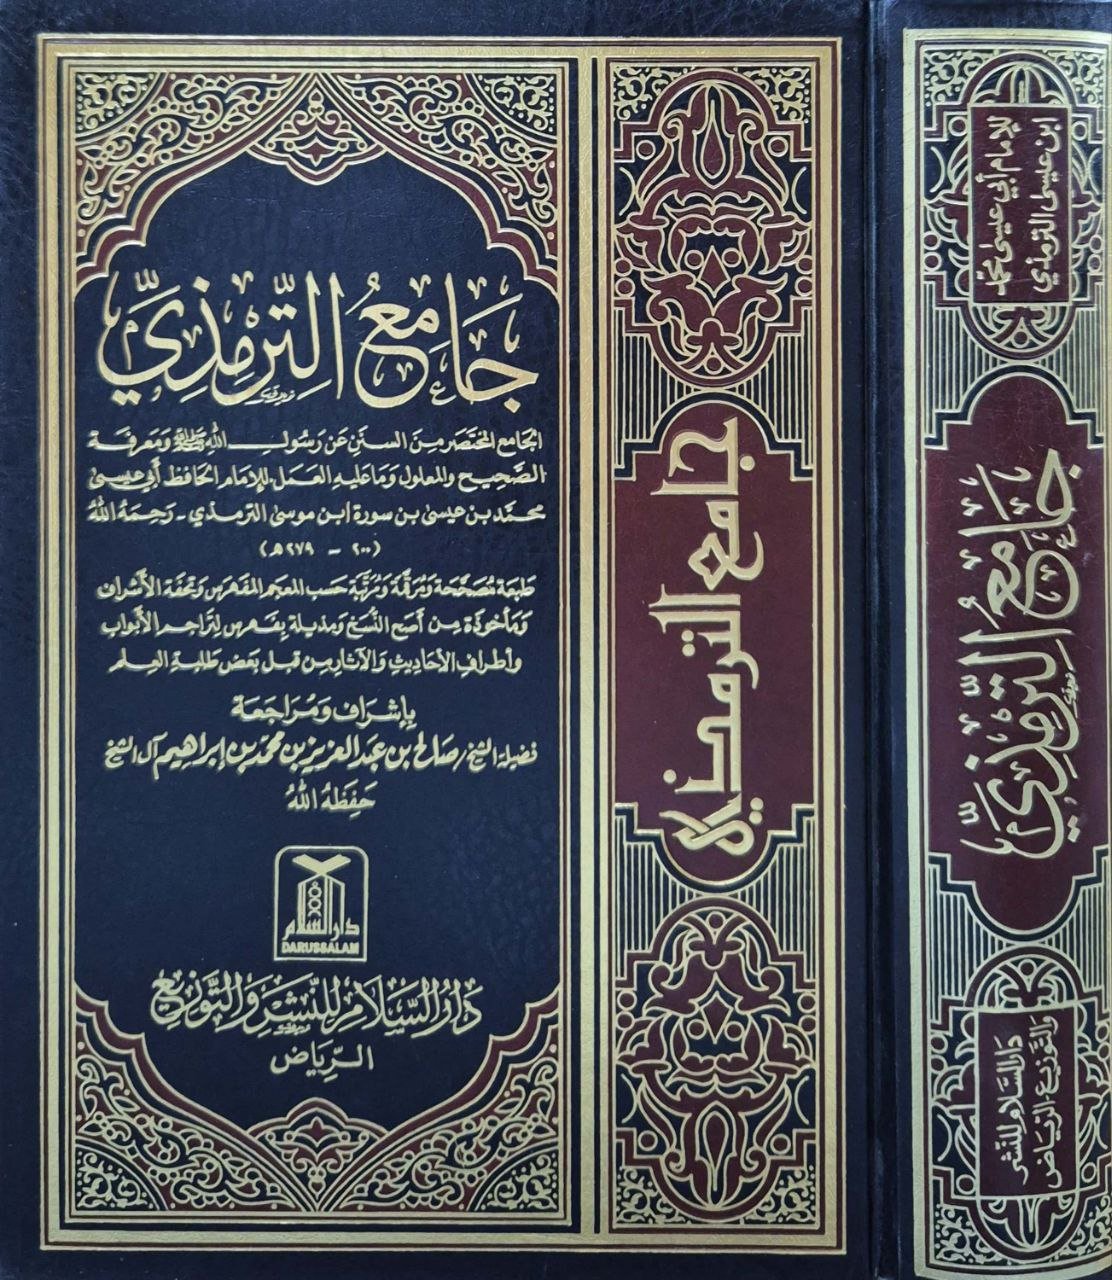 جَامِعُ التِّرْمِذِيِّ
الجامع المختصر مِنَ السنَن عَن رَسُول اللّٰه ﷺ وَمَعرفَة
الصَّحِيح والمعلول وَمَا عليهِ العَمَل، للإمَام الحَافظ أَبي عيسىٰ
محمَّد بن عيسىٰ بن سورة ابن موسىٰ الترمذي - رَحِمَهُ اللّٰهُ
(٢٠٠ - ٢٧٩هـ)
طبعَة مُصَحَّحَة وَمُرَقَّمَة وَمُرَتَّبَة حَسَب المعجم المفهرس وَتحفة الأشراف
وَمَأخوذَة مِن أصَح النُّسَخ وَمذيلة بفهرس لِتَراجم الأبوَاب
وَأطراف الأحَاديث وَالآثار مِن قبل بَعض طَلبَة العِلم
بِإشرَاف وَمُرَاجَعَة
فضيلة الشيخ/ صَالح بن عَبد العَزيز بن محمّد بن إبراهيم آل الشيخ
حَفِظَهُ اللّٰهُ
دار السلام
DARUSSALAM
دَارُ السَّلَامِ لِلنَّشرِ وَالتَّوزِيعِ
الرِّيَاض
جامع الترمذي
للإمام أبي عيسىٰ محمّد
ابن عيسىٰ الترمذي
جَامِعُ التِّرْمِذِيِّ
دَار السَّلَام للنشر
وَالتَّوزيع الرياض